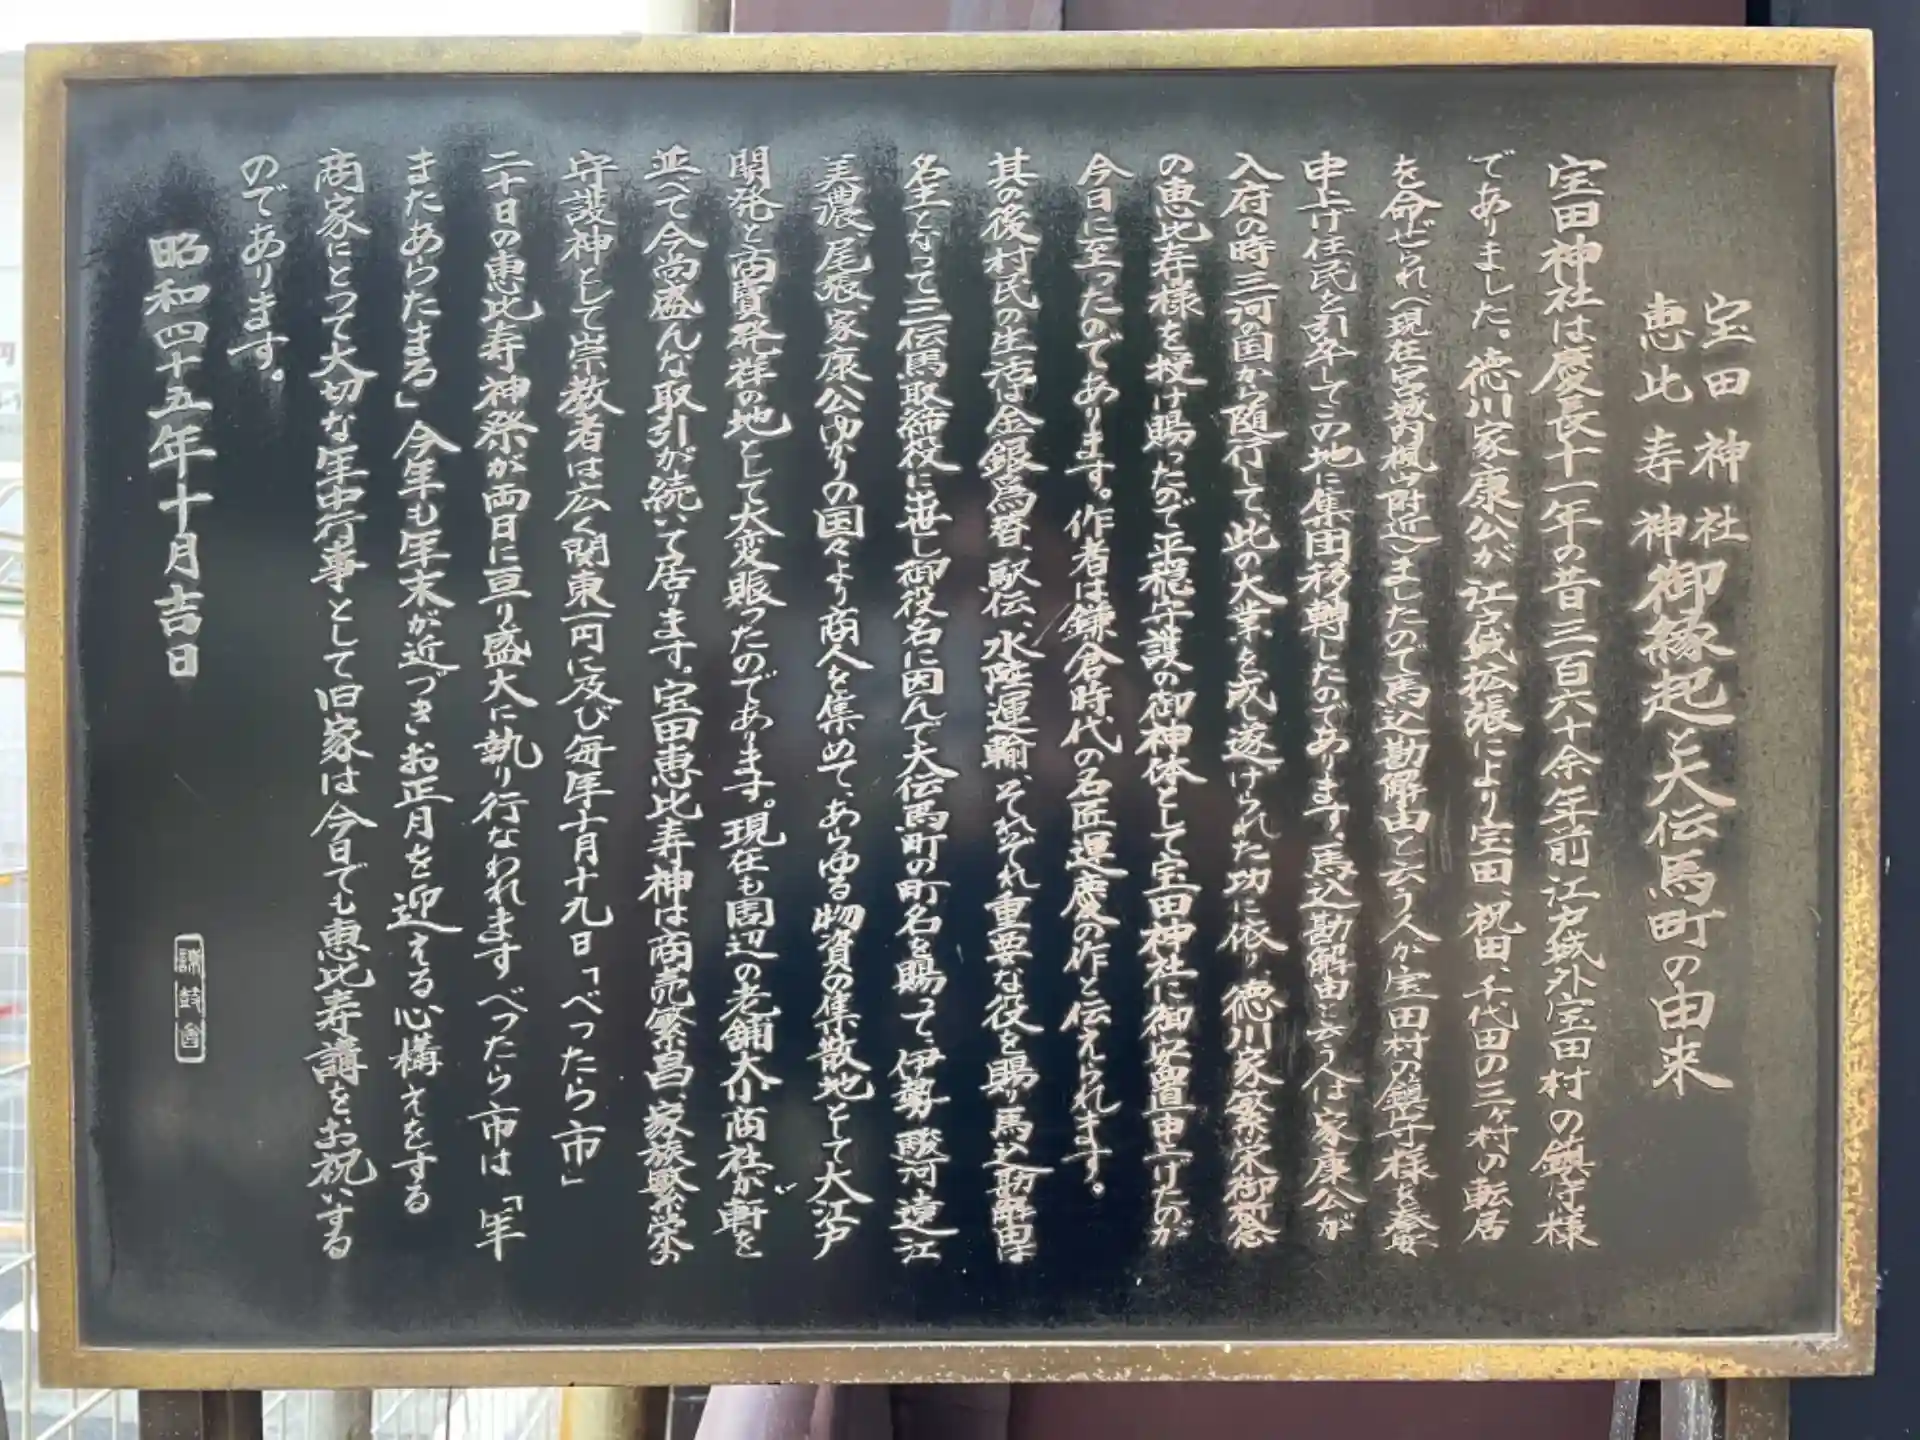 宝田神社
恵比寿神
御縁起と大伝馬町の由来
宝田神社は慶長十一年の昔三百六十余年前江戸城外宝田村の鎮守様
でありました。徳川家康公が江戸城拡張により宝田、祝田、千代田の三ヶ村の転居
を命ぜられ(現在宮城内楓山附近)ましたので馬込勘解由と云う人が宝田村の鎮守様を奉安
申上げ住民を引率してこの地に集団移転したのであります。馬込勘解由と云う人は家康公が
入府の時三河の国から随行して、此の大業を成し遂げられた功に依り、徳川家繁栄御祈念
の恵比寿様を授け賜ったので平穏守護の御神体として宝田神社に御安置申上げたのが
今日に至ったのであります。作者は鎌倉時代の名匠運慶の作と伝えられます。
其の後村民の生活は金銀為替、駅伝、水陸運輸、それぞれ重要な役を賜り馬込勘解由は
名主となって三伝馬取締役に出世し御役名に因んで大伝馬町の町名を賜って、伊勢駿河遠江
美濃、尾張、家康公ゆかりの国々より商人を集めて、あらゆる物資の集散地として大江戸
開発と商賈発祥の地として大変賑ったのであります。現在も周辺の老舗大小商社が軒を
並べて今尚盛んな取引が続いて居ります。宝田恵比寿神は商売繁昌、家族繁栄の
守護神として崇教者は広く関東一円に及び毎年十月十九日「べったら市」
二十日の恵比寿神祭が両日に亘り盛大に執り行なわれますべったら市は「年
またあらたまる」今年も年末が近づきお正月を迎える心構えをする
商家にとって大切な年中行事として旧家は今日でも恵比寿講を、お祝いする
のであります。
昭和四十五年十月吉日